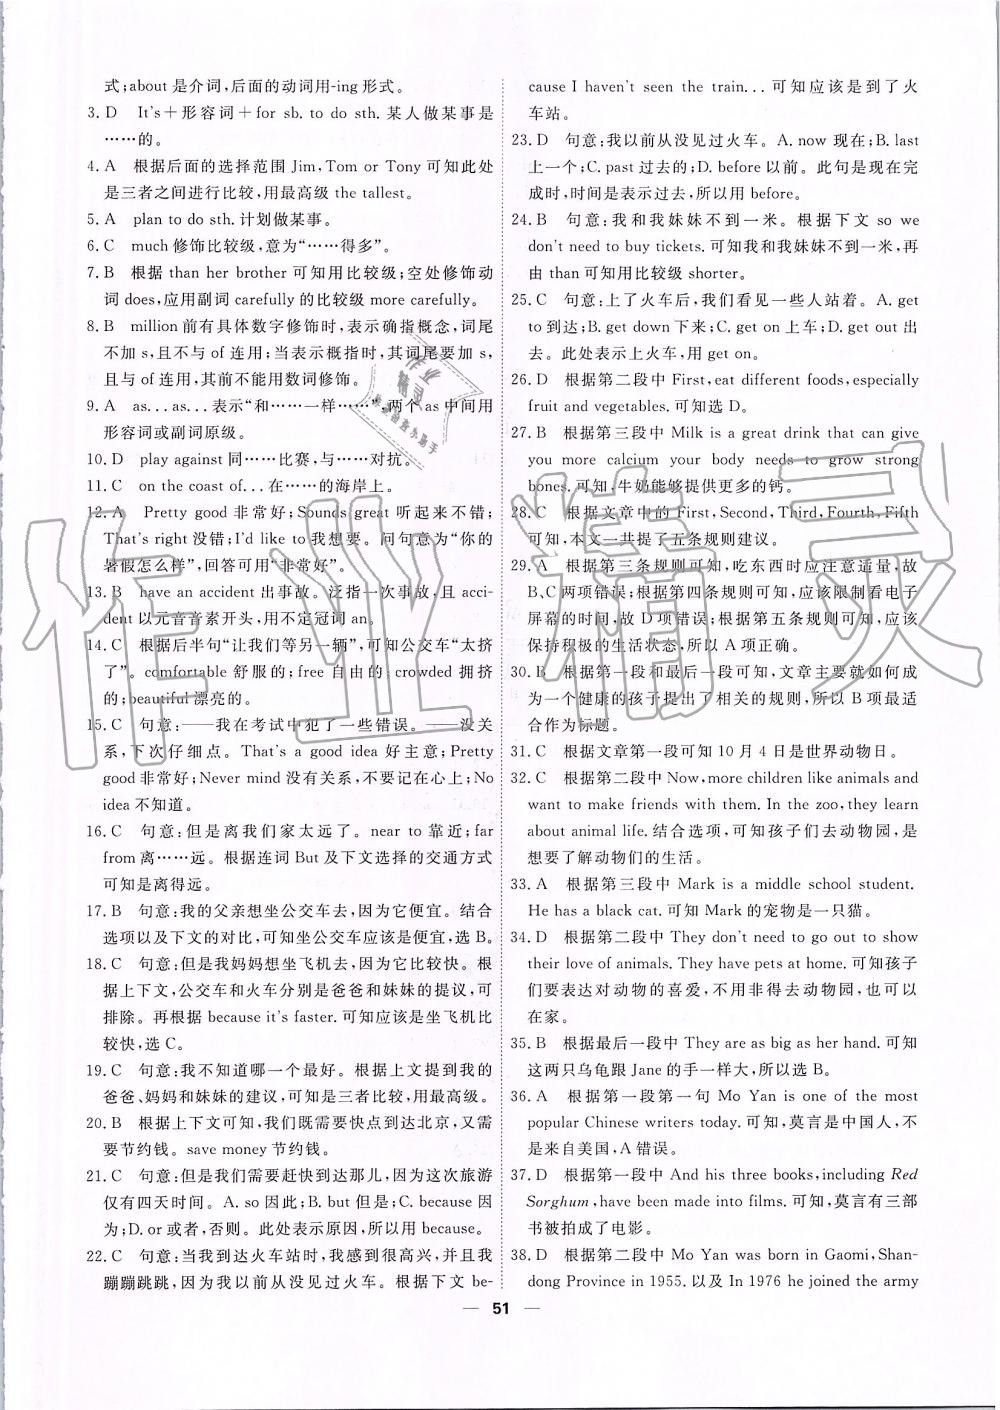 式;about 是介词,后面的动词用-ing 形式。
3. D　It's＋形容词＋for sb. to do sth. 某人做某事是
……的。
4. A　根据后面的选择范围 Jim, Tom or Tony 可知此处
是三者之间进行比较,用最高级 the tallest。
5. A　plan to do sth. 计划做某事。
6. C　much 修饰比较级,意为“……得多”。
7. B　根据 than her brother 可知用比较级;空处修饰动
词 does,应用副词 carefully 的比较级 more carefully。
8. B　million 前有具体数字修饰时,表示确指概念,词尾
不加 s,且不与 of 连用;当表示概指时,其词尾要加 s,
且与 of 连用,其前不能用数词修饰。
9. A　as... as... 表示“和……一样……”,两个 as 中间用
形容词或副词原级。
10. D　play against 同……比赛,与……对抗。
11. C　on the coast of... 在……的海岸上。
12. A　Pretty good 非常好;Sounds great 听起来不错;
That's right 没错;I'd like to 我想要。问句意为“你的
暑假怎么样”,回答可用“非常好”。
13. B　have an accident 出事故。泛指一次事故,且 acci-
dent 以元音音素开头,用不定冠词 an。
14. C　根据后半句“让我们等另一辆”,可知公交车“太挤
了”。comfortable 舒服的;free 自由的;crowded 拥挤
的;beautiful 漂亮的。
15. C　句意:——我在考试中犯了一些错误。——没关
系,下次仔细点。That's a good idea 好主意;Pretty
good 非常好;Never mind 没有关系,不要记在心上;No
idea 不知道。
16. C　句意:但是离我们家太远了。near to 靠近;far
from 离……远。根据连词 But 及下文选择的交通方式
可知是离得远。
17. B　句意:我的父亲想坐公交车去,因为它便宜。结合
选项以及下文的对比,可知坐公交车应该是便宜,选 B。
18. C　句意:但是我妈妈想坐飞机去,因为它比较快。根
据上下文,公交车和火车分别是爸爸和妹妹的提议,可
排除。再根据 because it's faster. 可知应该是坐飞机比
较快,选 C。
19. C　句意:我不知道哪一个最好。根据上文提到我的
爸爸、妈妈和妹妹的建议,可知是三者比较,用最高级。
20. B　根据上下文可知,我们既需要快点到达北京,又需
要节约钱。save money 节约钱。
21. C　句意:但是我们需要赶快到达那儿,因为这次旅游
仅有四天时间。A. so 因此;B. but 但是;C. because 因
为;D. or 或者,否则。此处表示原因,所以用 because。
22. C　句意:当我到达火车站时,我感到很高兴,并且我
蹦蹦跳跳,因为我以前从没见过火车。根据下文 be-
cause I haven't seen the train... 可知应该是到了火
车站。
23. D　句意:我以前从没见过火车。A. now 现在;B. last
上一个;C. past 过去的;D. before 以前。此句是现在完
成时,时间是表示过去,所以用 before。
24. B　句意:我和我妹妹不到一米。根据下文 so we
don't need to buy tickets. 可知我和我妹妹不到一米,再
由 than 可知用比较级 shorter。
25. C　句意:上了火车后,我们看见一些人站着。A. get
to 到达;B. get down 下来;C. get on 上车;D. get out 出
去。此处表示上火车,用 get on。
26. D　根据第二段中 First, eat different foods, especially
fruit and vegetables. 可知选 D。
27. B　根据第三段中 Milk is a great drink that can give
you more calcium your body needs to grow strong
bones. 可知,牛奶能够提供更多的钙。
28. C　根据文章中的 First, Second, Third, Fourth, Fifth
可知,本文一共提了五条规则建议。
29. A　根据第三条规则可知,吃东西时应注意适量,故
B、C 两项错误;根据第四条规则可知,应该限制看电子
屏幕的时间,故 D 项错误;根据第五条规则可知,应该
保持积极的生活状态,所以 A 项正确。
30. B　根据第一段和最后一段可知,文章主要就如何成
为一个健康的孩子提出了相关的规则,所以 B 项最适
合作为标题。
31. C　根据文章第一段可知 10 月 4 日是世界动物日。
32. C　根据第二段中 Now, more children like animals and
want to make friends with them. In the zoo, they learn
about animal life. 结合选项,可知孩子们去动物园,是
想要了解动物们的生活。
33. A　根据第三段中 Mark is a middle school student.
He has a black cat. 可知 Mark 的宠物是一只猫。
34. D　根据第二段中 They don't need to go out to show
their love of animals. They have pets at home. 可知孩子
们要表达对动物的喜爱,不用非得去动物园,也可以
在家。
35. B　根据最后一段中 They are as big as her hand. 可知
这两只乌龟跟 Jane 的手一样大,所以选 B。
36. A　根据第一段第一句 Mo Yan is one of the most
popular Chinese writers today. 可知,莫言是中国人,不
是来自美国,A 错误。
37. D　根据第一段中 And his three books, including Red
Sorghum, have been made into films. 可知,莫言有三部
书被拍成了电影。
38. D　根据第二段中 Mo Yan was born in Gaomi, Shan-
dong Province in 1955. 以及 In 1976 he joined the army
— 51 —
作业精灵